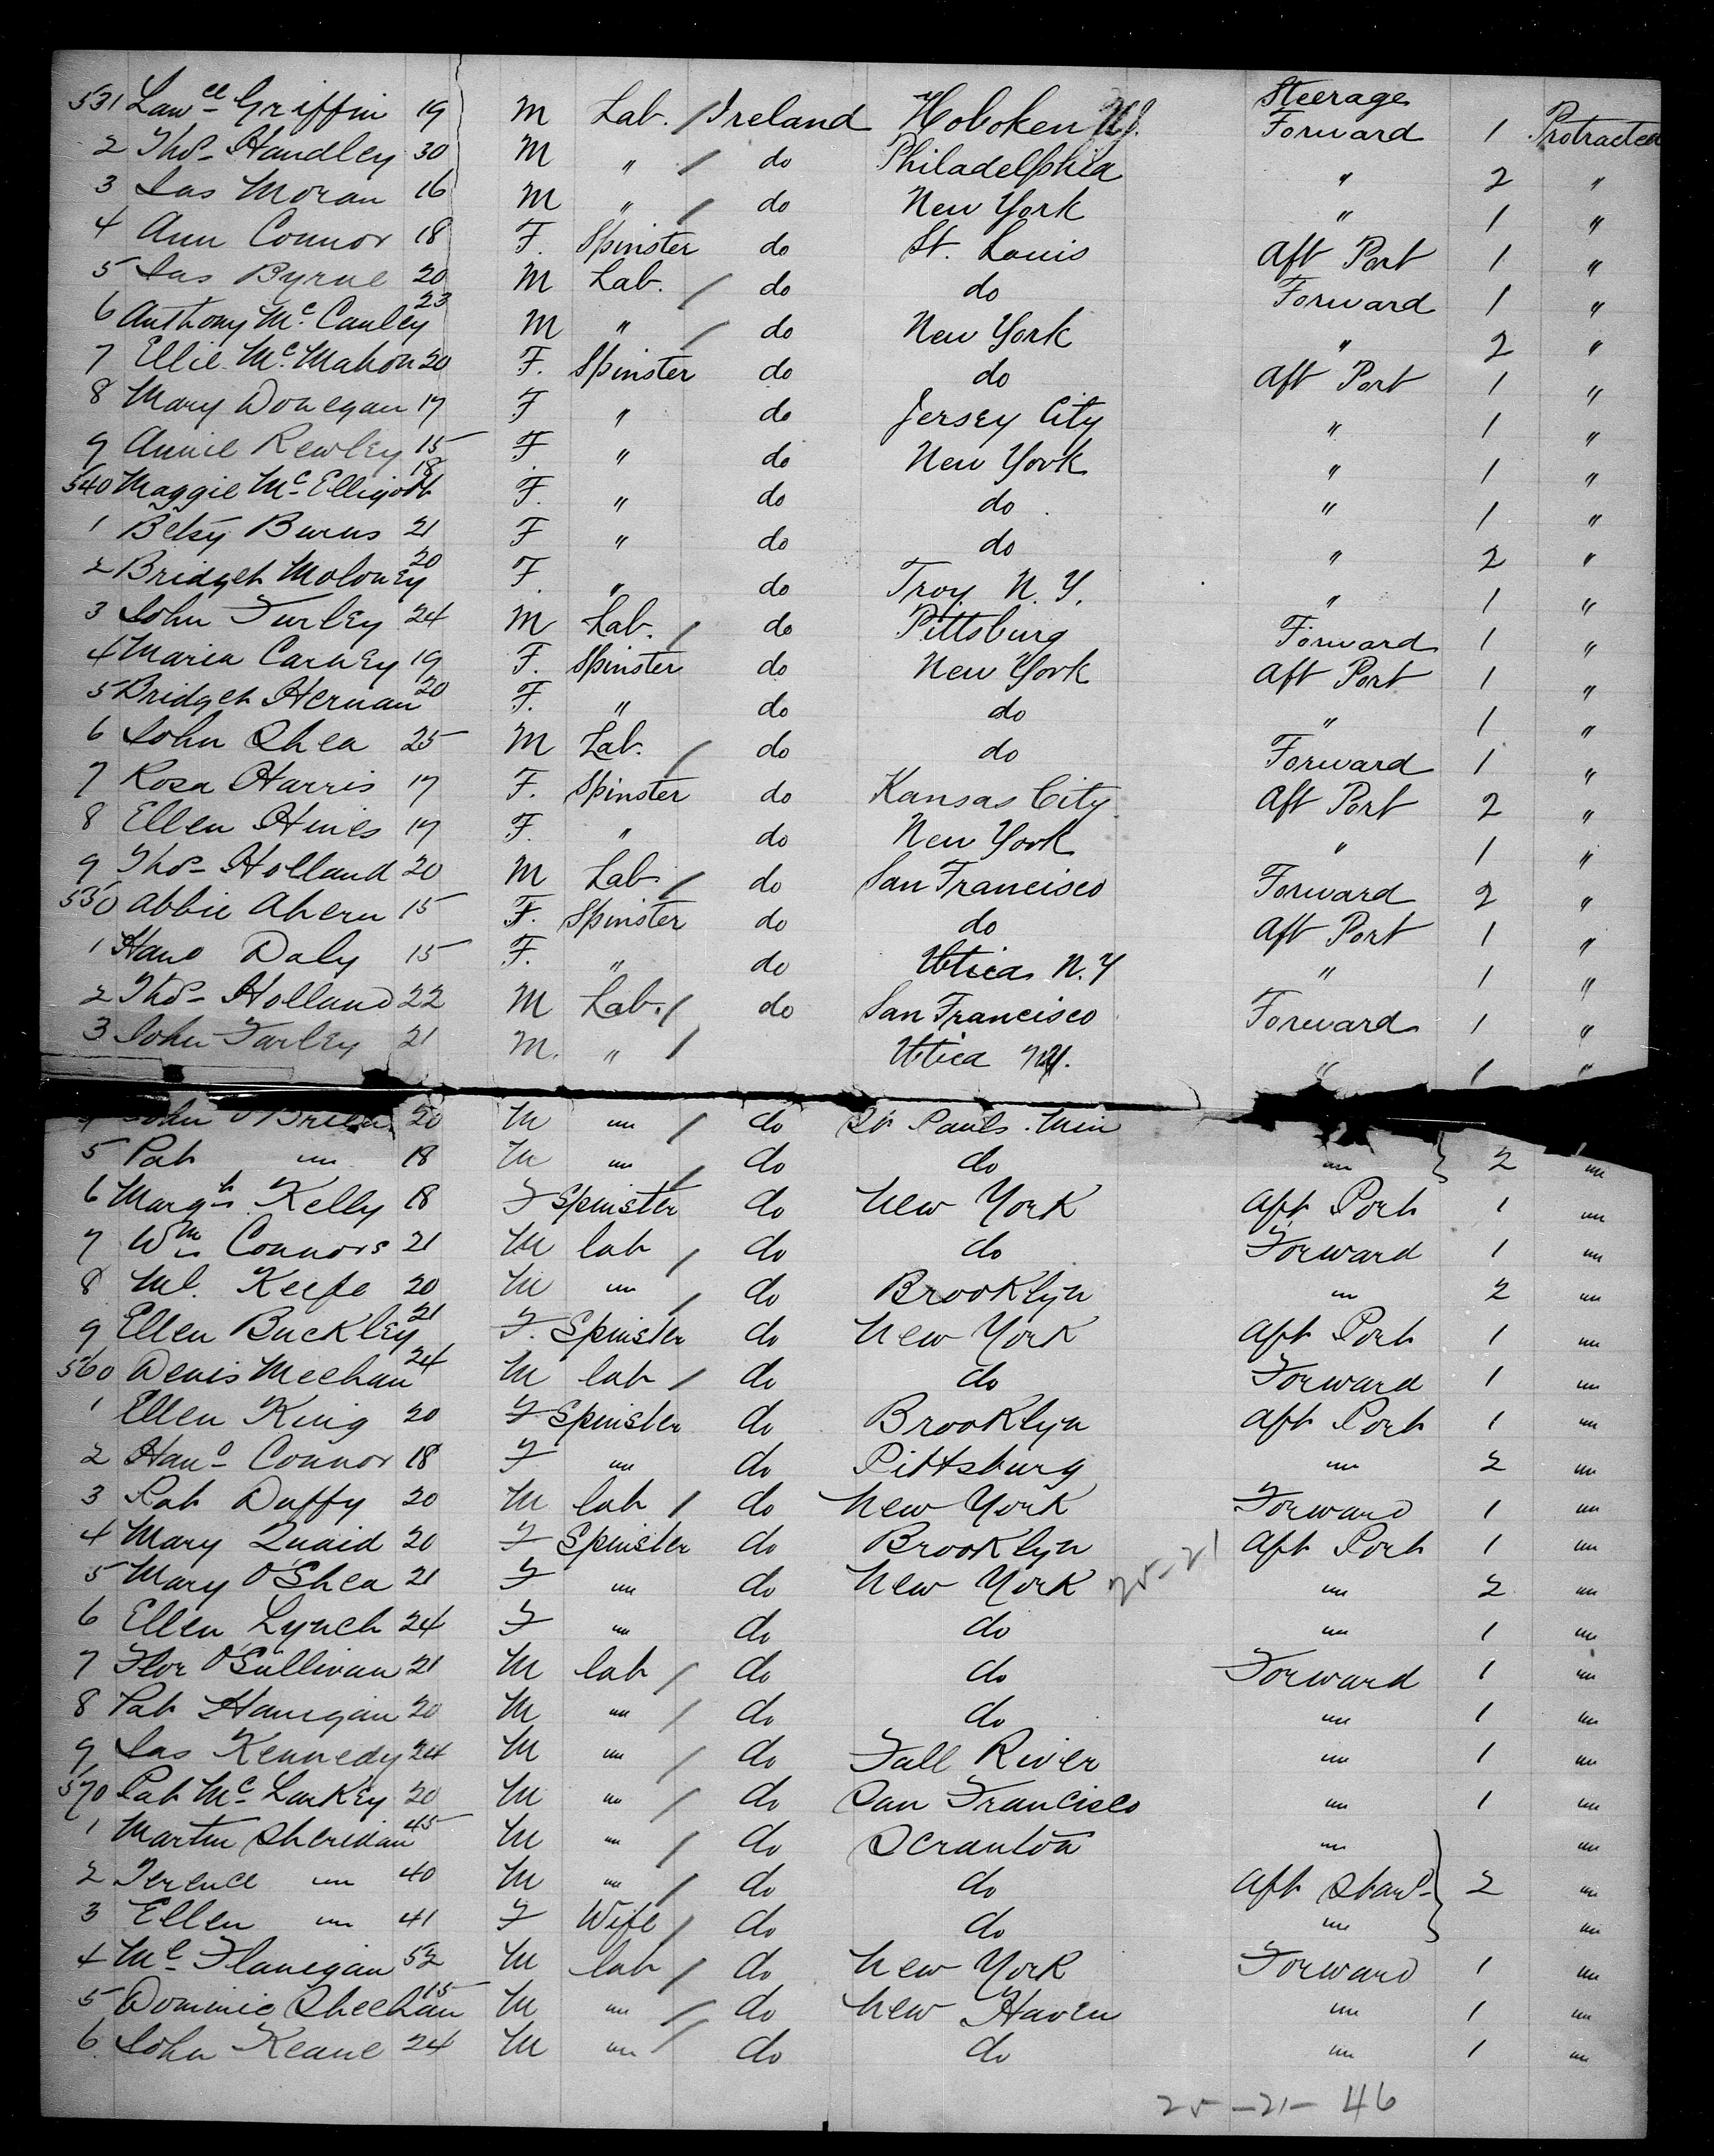 Steerage
531 Lawce Griffin 19 M Lab. / Ireland Hoboken NJ. Forward 1 Protracted
2 Thos Handley 30 M " / do Philadelphia " 2 "
3 Jas Moran 16 M " / do New York " 1 "
4 Ann Connor 18 F. Spinster do St. Louis Aft Port 1 "
5 Jas Byrne 20 M Lab. / do do Forward 1 "
6 Anthony Mc. Cauley 23 M " / do New York " 2 "
7 Ellie Mc. Mahon 20 F. Spinster do do Aft Port 1 "
8 Mary Donegan 17 F " do Jersey City " 1 "
9 Annie Rewley 15 F " do New York " 1 "
540 Maggie Mc Elligott 18 F. " do do " 1 "
1 Betsy Burns 21 F " do do " 2 "
2 Bridget Moloney 20 F. " do Troy N. Y. " 1 "
3 John Turley 24 M Lab. / do Pittsburg Forward 1 "
4 Maria Carney 19 F. Spinster do New York Aft Port 1 "
5 Bridget Hernan 20 F. " do do " 1 "
6 John Shea 25 M Lab. / do do Forward 1 "
7 Rosa Harris 17 F. Spinster do Kansas City Aft Port 2 "
8 Ellen Hines 17 F. " do New York " 1 "
9 Thos Holland 20 M Lab / do San Francisco Forward 2 "
550 Abbie Ahern 15 F. Spinster do do Aft Port 1 "
1 Hano Daly 15 F. " do Utica N.Y " 1 "
2 Thos Holland 22 M Lab. / do San Francisco Forward 1 "
3 John Farley 21 M. " / Utica NY. " 1 "
4 John O'Brien 20 M " / do St Pauls. Min
5 Pat " 18 M " / do do " } 2 "
6 Margt Kelly 18 F Spinster do New York Aft Port 1 "
7 Wm Connors 21 M lab / do do Forward 1 "
8 Ml. Keefe 20 M " / do Brooklyn " 2 "
9 Ellen Buckley 21 F. Spinster do New York Aft Port 1 "
560 Denis Meehan 24 M lab / do do Forward 1 "
1 Ellen King 20 F Spinster do Brooklyn Aft Port 1 "
2 Hano Connor 18 F " do Pittsburg " 2 "
3 Pat Duffy 20 M lab / do New York Forward 1 "
4 Mary Quaid 20 F Spinster do Brooklyn Aft Port 1 "
5 Mary O'Shea 21 F " do New York 25-21 " 2 "
6 Ellen Lynch 24 F " do do " 1 "
7 Flor O'Sullivan 21 M lab / do do Forward 1 "
8 Pat Hanigan 20 M " / do do " 1 "
9 Jas Kennedy 24 M " / do Fall River " 1 "
570 Pat Mc Larkey 20 M " / do San Francisco " 1 "
1 Martin Sheridan 45 M " / do Scranton " "
2 Terence " 40 M " / do do Aft Starbd } 2 "
3 Ellen " 41 F Wife / do do " "
4 Ml Flanegan 52 M lab / do New York Forward 1 "
5 Dominic Sheehan 15 M " / do New Haven " 1 "
6 John Keane 24 M " / do do " 1 "
25-21-46